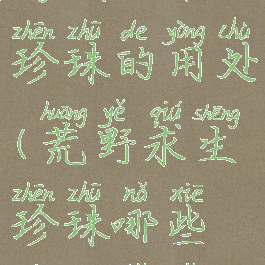 zhēn zhū de yòng chù
珍珠的用处
huāng yě qiú shēng
(荒野求生
zhēn zhū nǎ xiē
珍珠哪些